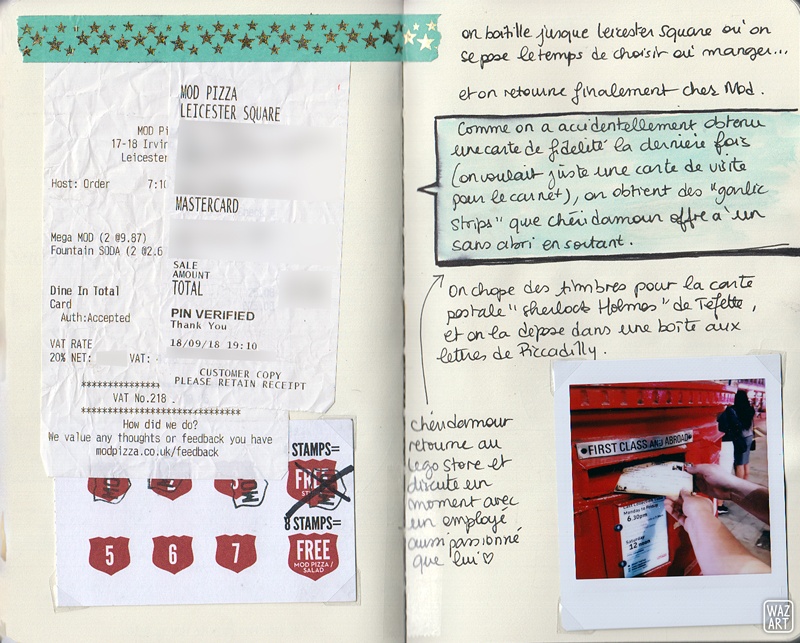 MOD PIZZA
LEICESTER SQUARE
MOD Pi
17-18 Irvin
Leicester
Host: Order 7:10
MASTERCARD
Mega MOD (2 @9.87)
Fountain SODA (2 @2.6
SALE
AMOUNT
TOTAL
Dine In Total
Card
Auth:Accepted
PIN VERIFIED
Thank You
18/09/18 19:10
VAT RATE
20% NET: VAT:
CUSTOMER COPY
PLEASE RETAIN RECEIPT
********************
VAT No.218
********************
How did we do?
We value any thoughts or feedback you have
modpizza.co.uk/feedback
STAMPS=
FREE
8 STAMPS=
5 6 7 FREE
MOD PIZZA /
SALAD
on boitille jusque leicester square où on
se pose le temps de choisir où manger...
et on retourne finalement chez Mod.
Comme on a accidentellement obtenu
une carte de fidélité la dernière fois
(on voulait juste une carte de visite
pour le carnet), on obtient des "garlic
strips" que chéridamour offre à un
sans abri en sortant.
On chope des timbres pour la carte
postale "sherlock Holmes" de Tefette,
et on la dépose dans une boîte aux
lettres de Piccadilly.
chéridamour
retourne au
lego store et
discute un
moment avec
un employé
aussi passionné
que lui ♡
FIRST CLASS AND ABROAD
Monday to Friday
6.30pm
Saturday
12 noon
WAZ
ART